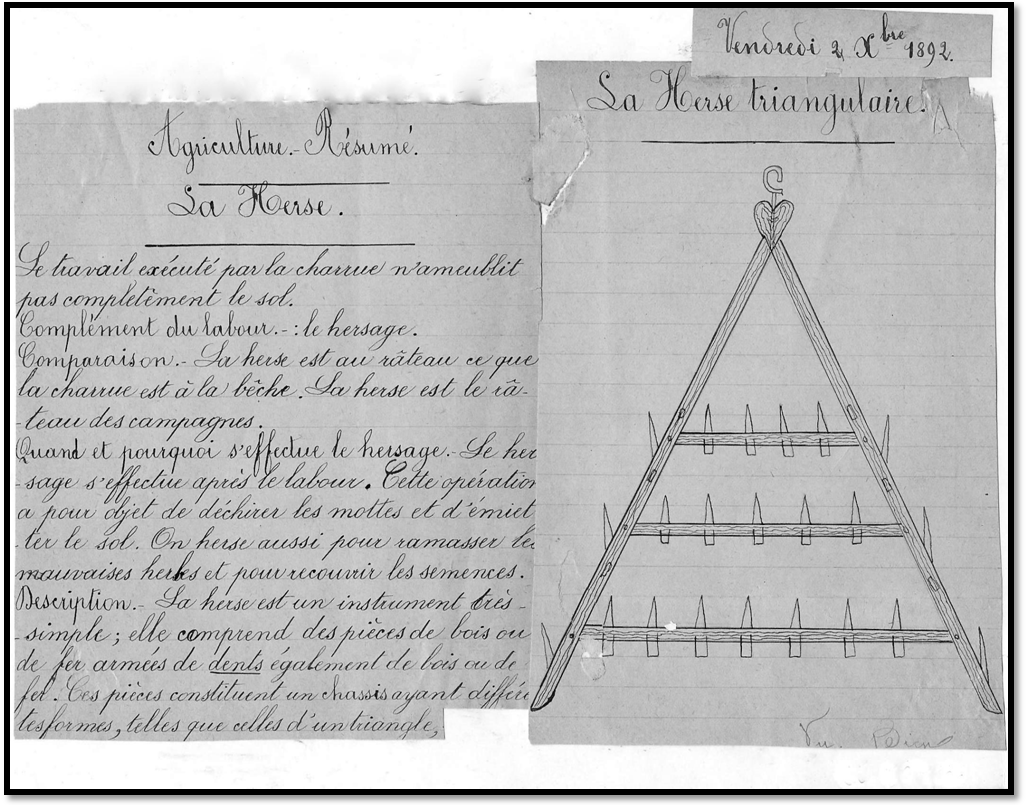 Vendredi 2 Xbre 1892.
La Herse triangulaire.
Agriculture.- Résumé.
La Herse.
Le travail exécuté par la charrue n'ameublit
pas complètement le sol.
Complément du labour.-: le hersage.
Comparaison.- La herse est au râteau ce que
la charrue est à la bêche. La herse est le râ-
-teau des campagnes.
Quand et pourquoi s'effectue le hersage.- Le her
-sage s'effectue après le labour. Cette opération
a pour objet de déchirer les mottes et d'émiet
-ter le sol. On herse aussi pour ramasser les
mauvaises herbes et pour recouvrir les semences.
Description.- La herse est un instrument très-
-simple; elle comprend des pièces de bois ou
de fer armées de dents également de bois ou de
fer. Ces pièces constituent un chassis ayant différe
tes formes, telles que celles d'un triangle,
Vu. Bien